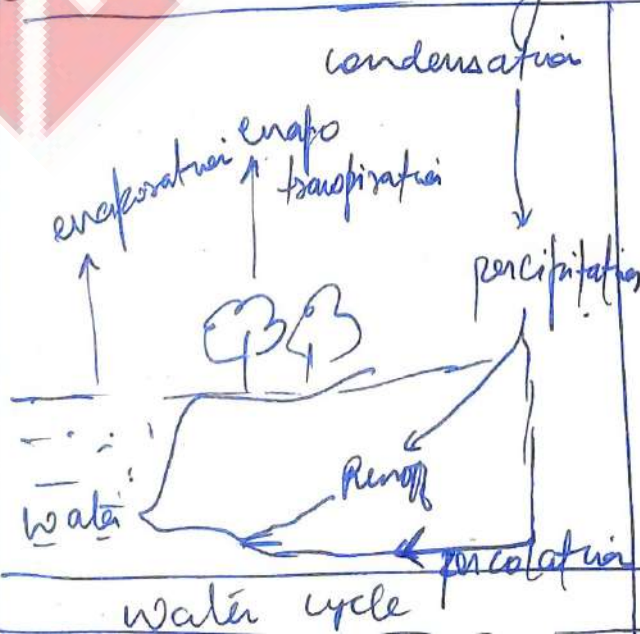 condensation
evaporation evapo
transpiration
percipitation
Runoff
water
percolation
water cycle